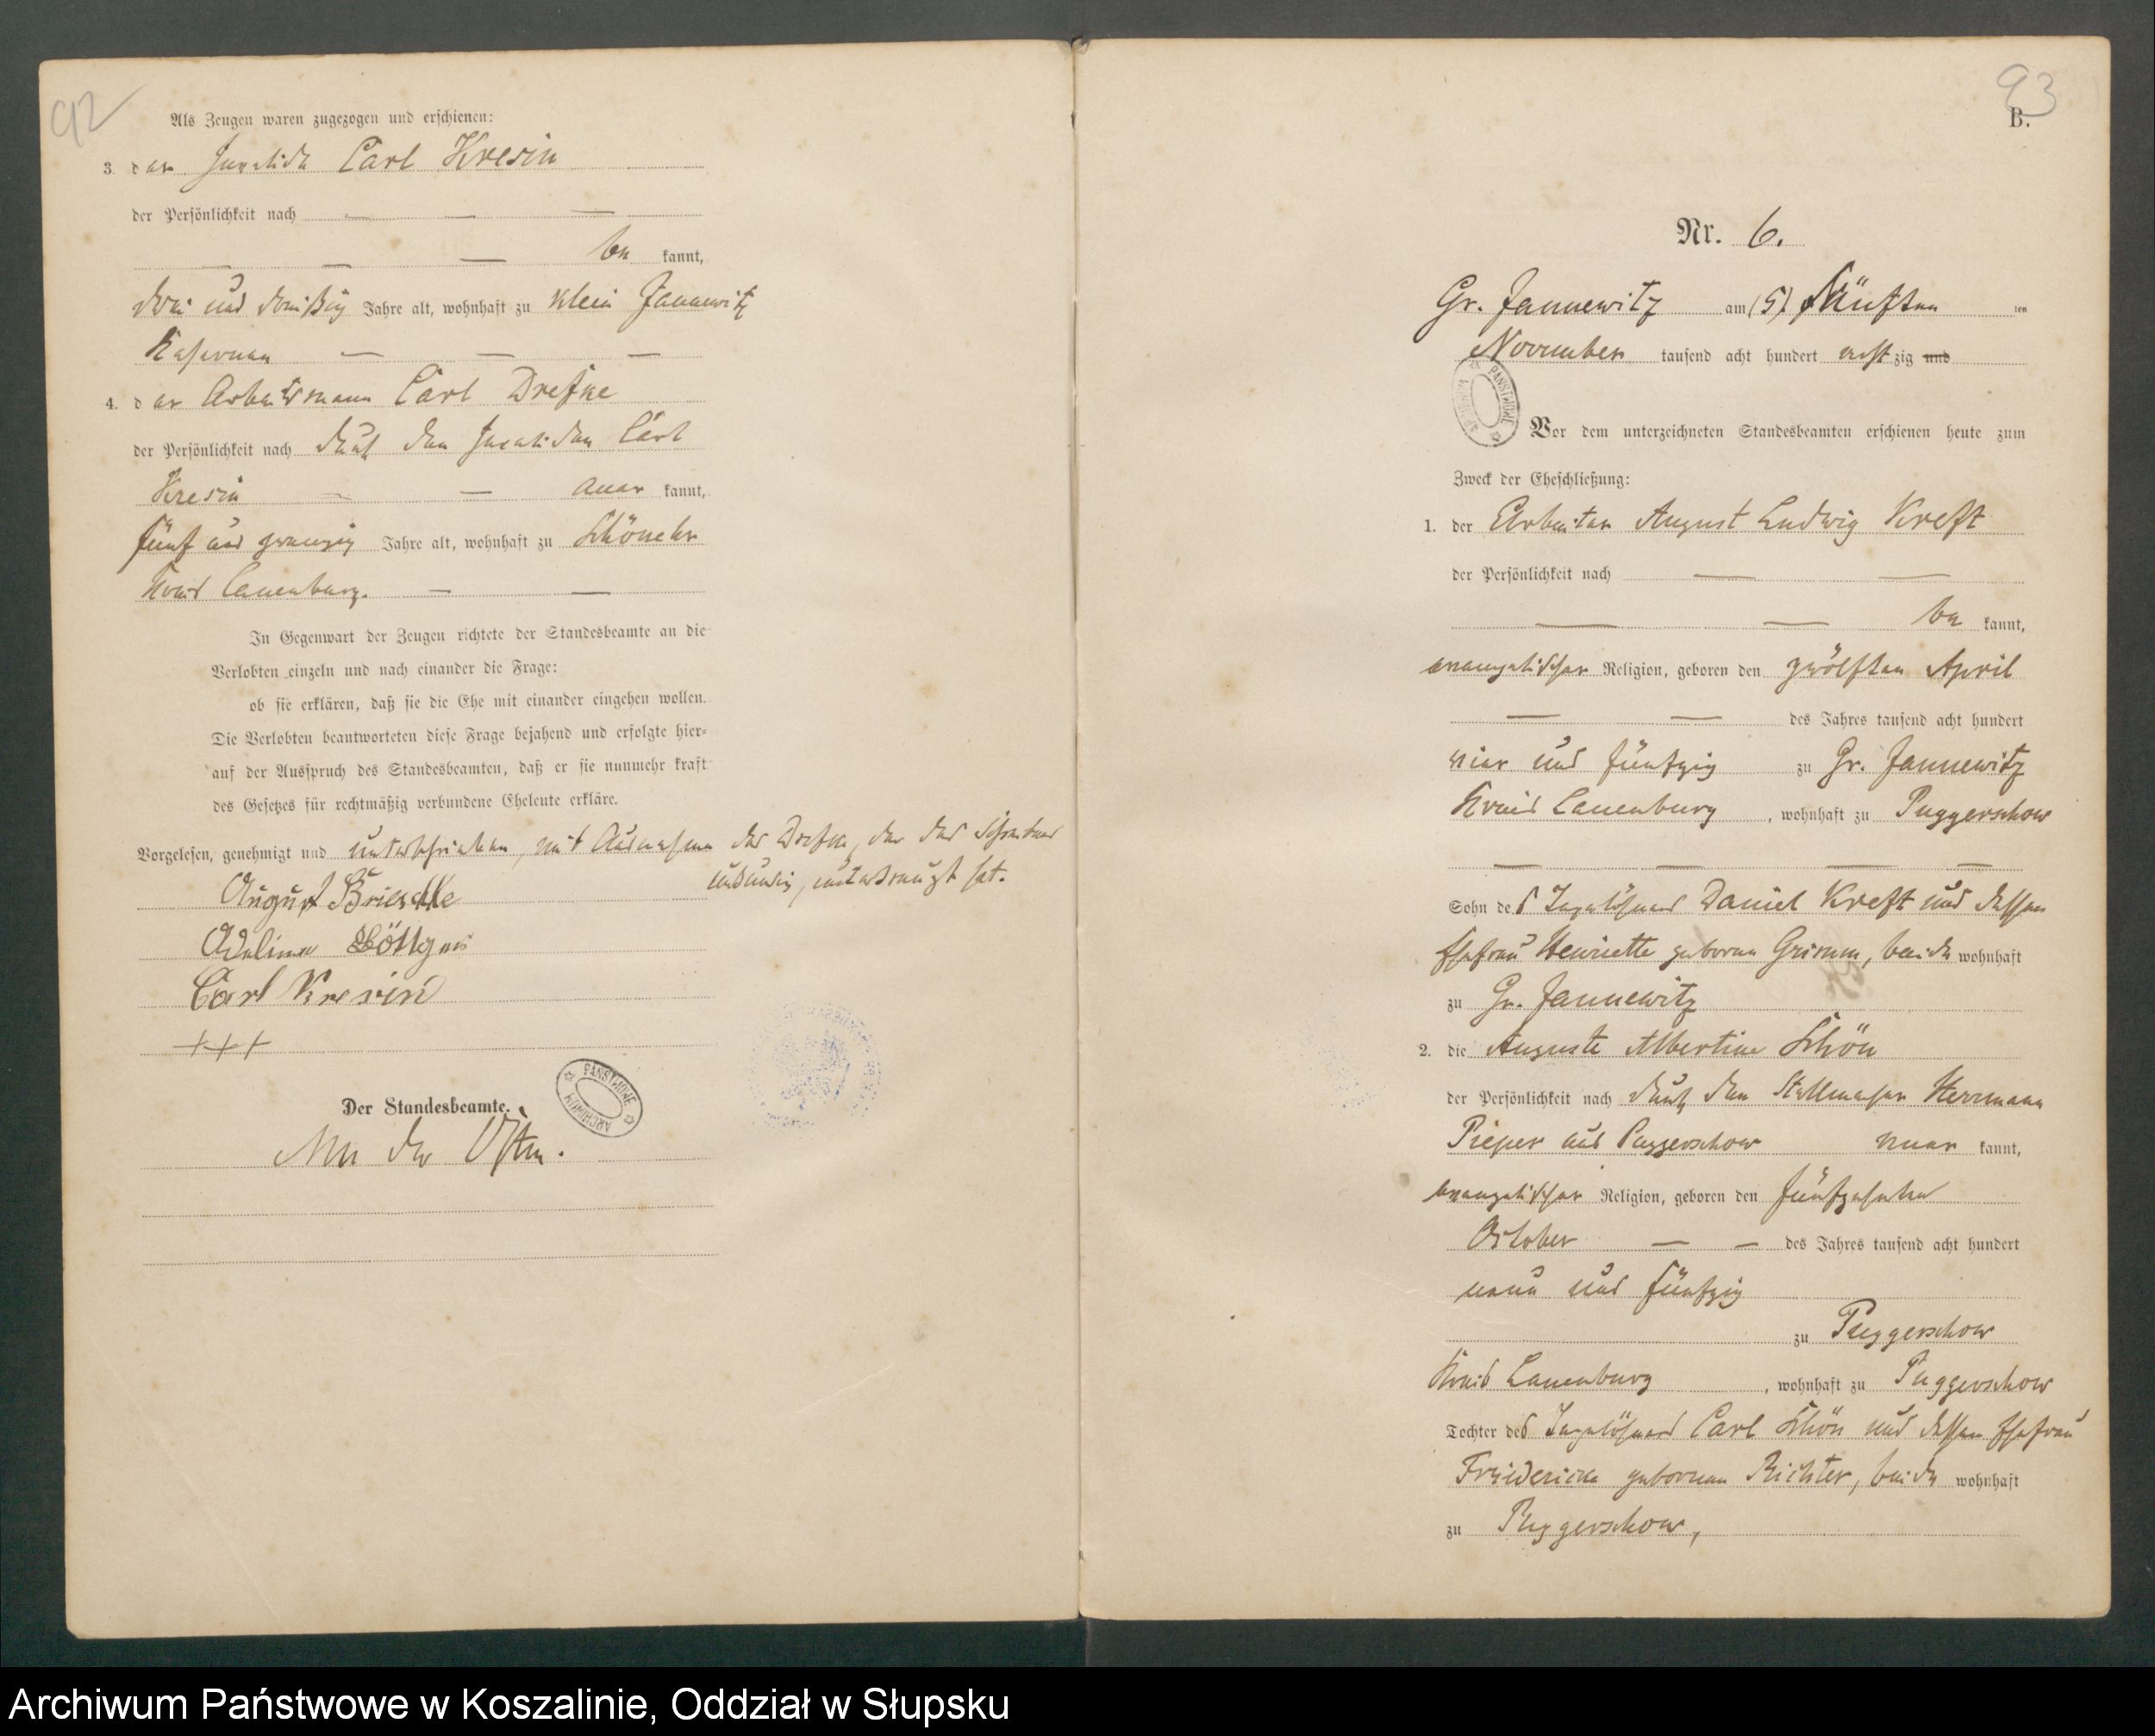 92
Als Zeugen waren zugezogen und erschienen:
3. der Invalide Carl Kresin
der Persönlichkeit nach — — —
— — — be kannt,
drei und dreißig Jahre alt, wohnhaft zu Klein Jannewitz
Kasernen — — —
4. der Arbeitsmann Carl Drefke
der Persönlichkeit nach durch den Invaliden Carl
Kresin — — aner kannt,
fünf und zwanzig Jahre alt, wohnhaft zu Schönehr
Kreis Lauenburg. — —
In Gegenwart der Zeugen richtete der Standesbeamte an die
Verlobten einzeln und nach einander die Frage:
ob sie erklären, daß sie die Ehe mit einander eingehen wollen.
Die Verlobten beantworteten diese Frage bejahend und erfolgte hier-
auf der Ausspruch des Standesbeamten, daß er sie nunmehr kraft
des Gesetzes für rechtmäßig verbundene Eheleute erkläre.
Vorgelesen, genehmigt und unterschrieben, mit Ausnahme des Drefke, der des Schreibens
unkundig, unterkreuzt hat.
August
Adeline Böttger
Carl Kresin
+++
Der Standesbeamte.
PAŃSTWOWE ARCHIWUM
93
B.
Nr. 6.
Gr. Jannewitz am (5) Fünften ten
November tausend acht hundert acht zig und
PAŃSTWOWE ARCHIWUM
Vor dem unterzeichneten Standesbeamten erschienen heute zum
Zweck der Eheschließung:
1. der Arbeiter August Ludwig Kreft
der Persönlichkeit nach — —
— — be kannt,
evangelischer Religion, geboren den zwölften April
— — des Jahres tausend acht hundert
vier und fünfzig zu Gr. Jannewitz
Kreis Lauenburg, wohnhaft zu Puggerschow
— — — —
Sohn des Tagelöhners Daniel Kreft und dessen
Ehefrau Henriette geborene Grimm, beide wohnhaft
zu Gr. Jannewitz
2. die Auguste Albertine Schön
der Persönlichkeit nach durch den Stellmacher Herrmann
Pieper aus Puggerschow aner kannt,
evangelischer Religion, geboren den fünfzehnten
October — — des Jahres tausend acht hundert
neun und fünfzig
zu Puggerschow
Kreis Lauenburg, wohnhaft zu Puggerschow
Tochter des Tagelöhners Carl Schön und dessen Ehefrau
Friedericke geborenen Richter, beide wohnhaft
zu Puggerschow,
Archiwum Państwowe w Koszalinie, Oddział w Słupsku